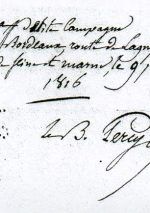 dite Campagne
Bordeaux, route de Lagn
de Seine et marne, le 9
1816
Le B. Percy